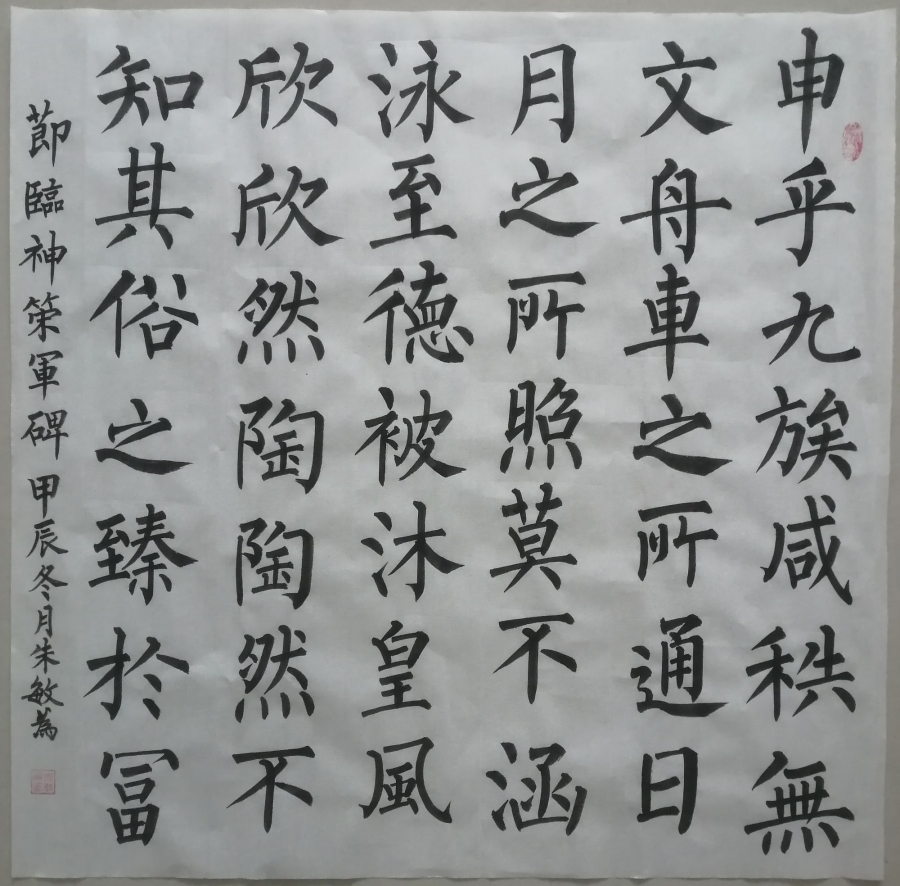 申乎九族咸秩無
文舟車之所通日
月之所照莫不涵
泳至德被沐皇風
欣欣然陶陶然不
知其俗之臻於冨
節臨神策軍碑甲辰冬月朱敏爲